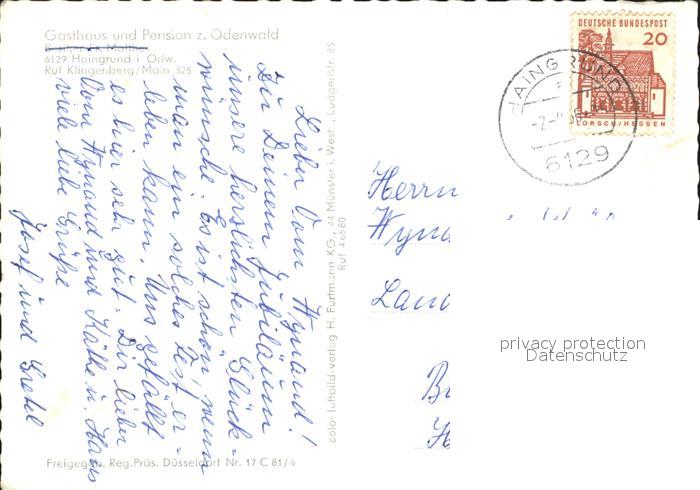 Gasthaus und Pension z. Odenwald
Besitzer Fr. Mather
6129 Haingrund i Odw.
Ruf Klingenberg/Main 325
Lieber Onm Wynand!
Zu Deinem Jubiläum
unsere herzlichsten Glück-
wünsche. Es ist schön, wenn
man ein solches Fest er-
leben kann. Uns gefällt
es hier sehr gut. Dir lieber
Onm Wynand und Käthe u. Hans
viele liebe Grüße
Josef und Gretel
color luftbild-verlag H. Furtmann KG., 44 Münster i. Westf., Ludgeristr. 85
Ruf 46680
Freigegeb. Reg.Präs. Düsseldorf Nr. 17 C 81/6
DEUTSCHE BUNDESPOST
20
LORSCH/HESSEN
HAINGRUND
6129
Herrn
Wyna
Land
privacy protection
Datenschutz